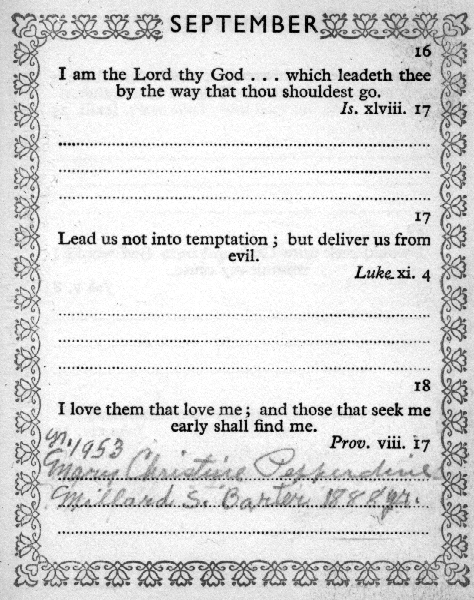 SEPTEMBER
16
I am the Lord thy God . . . which leadeth thee
by the way that thou shouldest go.
Is. xlviii. 17
17
Lead us not into temptation ; but deliver us from
evil.
Luke xi. 4
18
I love them that love me ; and those that seek me
early shall find me.
Prov. viii. 17
yr. 1953
Mary Christine Pepperdine
Millard S. Barter 1888 yr.